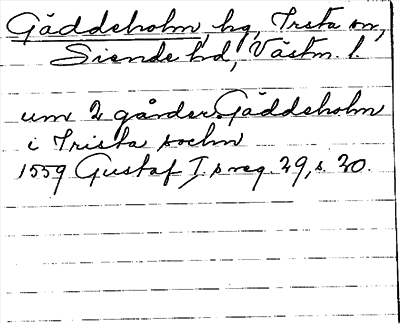 Gäddeholm, hg, Irsta sn,
Siende hd, Västm. l.
um 2 gårder Gäddeholm
i Irista sochn
1559 Gustaf I:s reg. 29, s. 20.